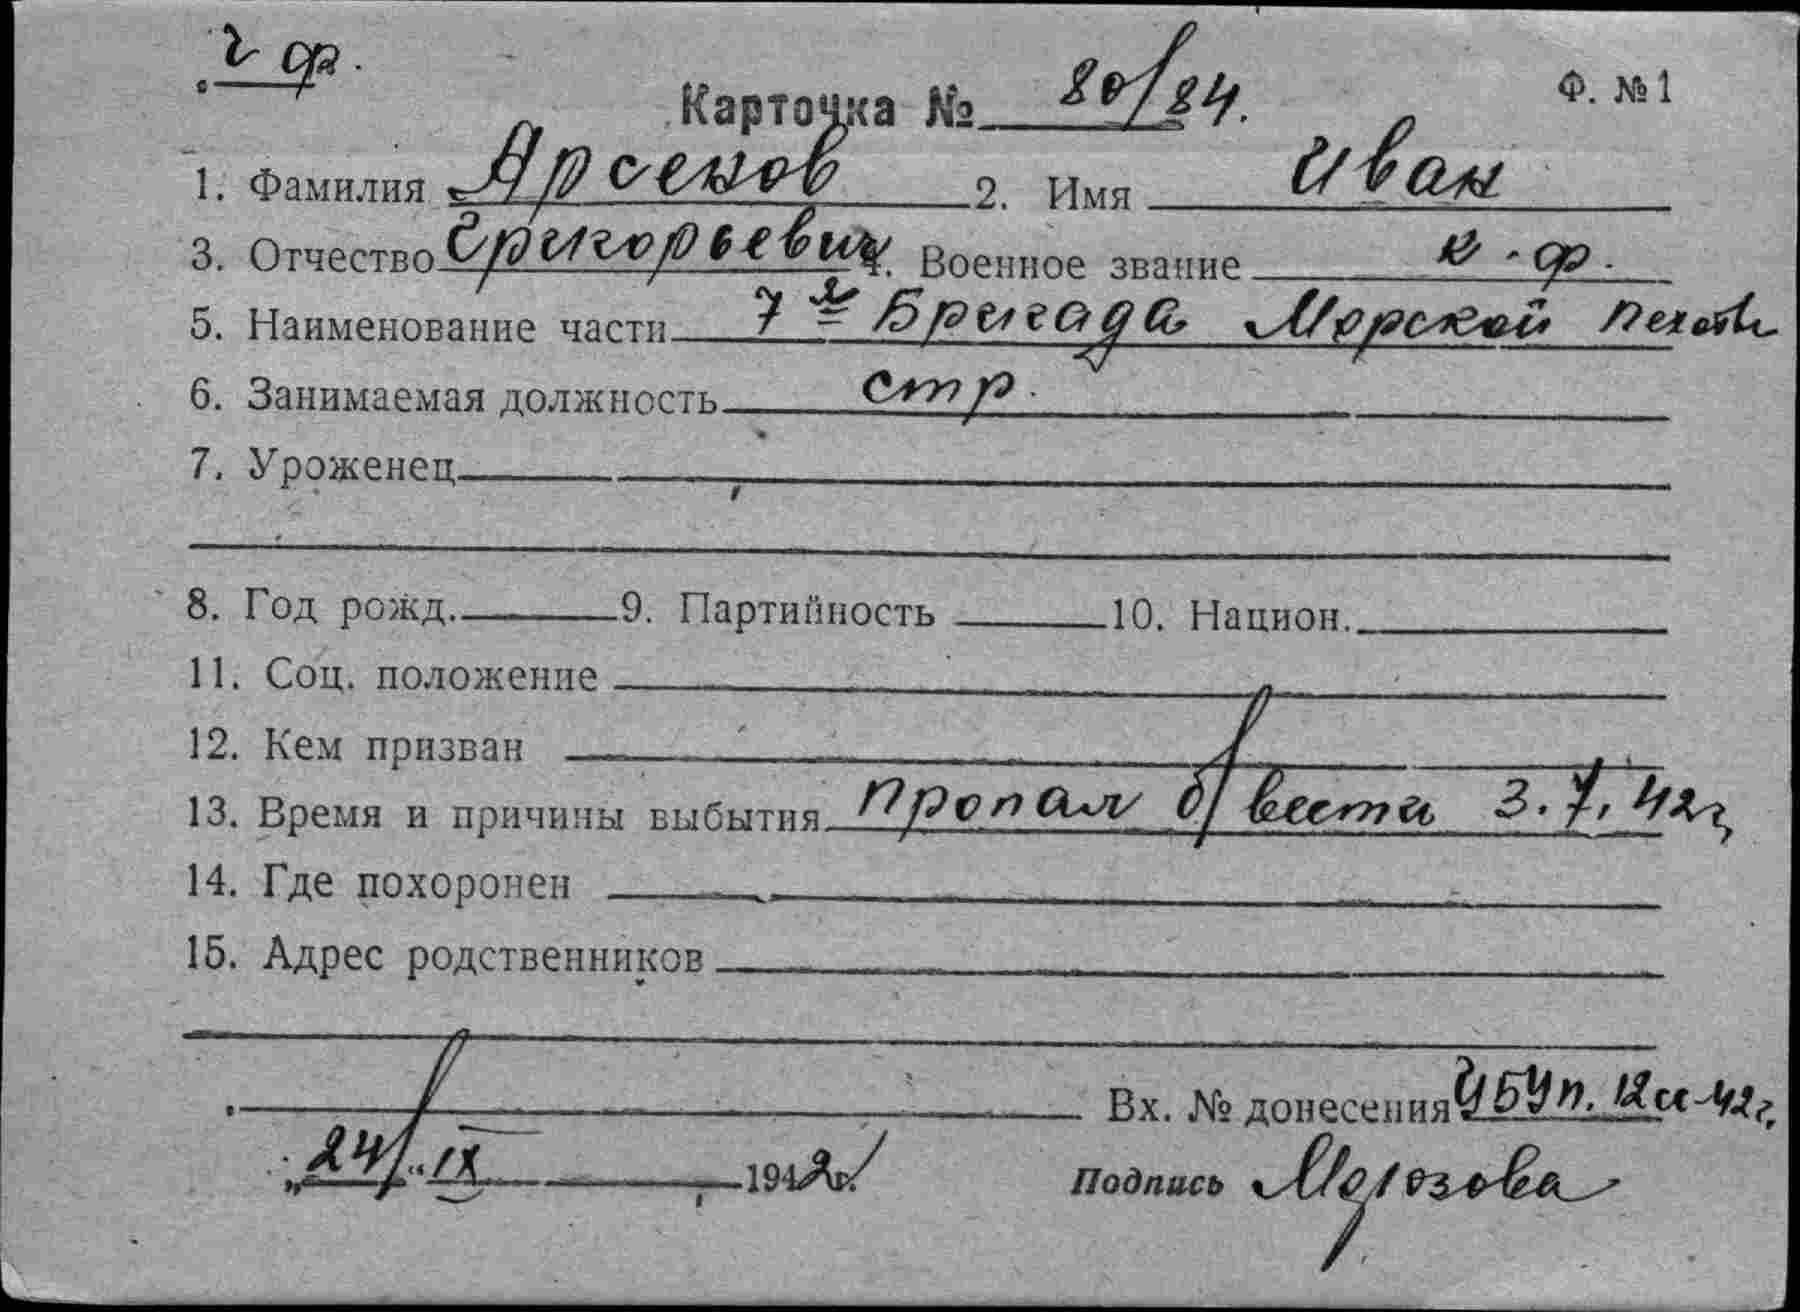 ч ф.
Карточка № 80/84. Ф. №1
1. Фамилия Арсенов 2. Имя Иван
3. Отчество Григорьевич 4. Военное звание к.ф.
5. Наименование части 7я Бригада Морской пехоты
6. Занимаемая должность стр.
7. Уроженец
8. Год рожд. 9. Партийность 10. Национ.
11. Соц. положение
12. Кем призван
13. Время и причины выбытия пропал б/вести 3.7.42г.
14. Где похоронен
15. Адрес родственников
Вх. № донесения 42г.
„24/" IX 1942г. Подпись Морозова